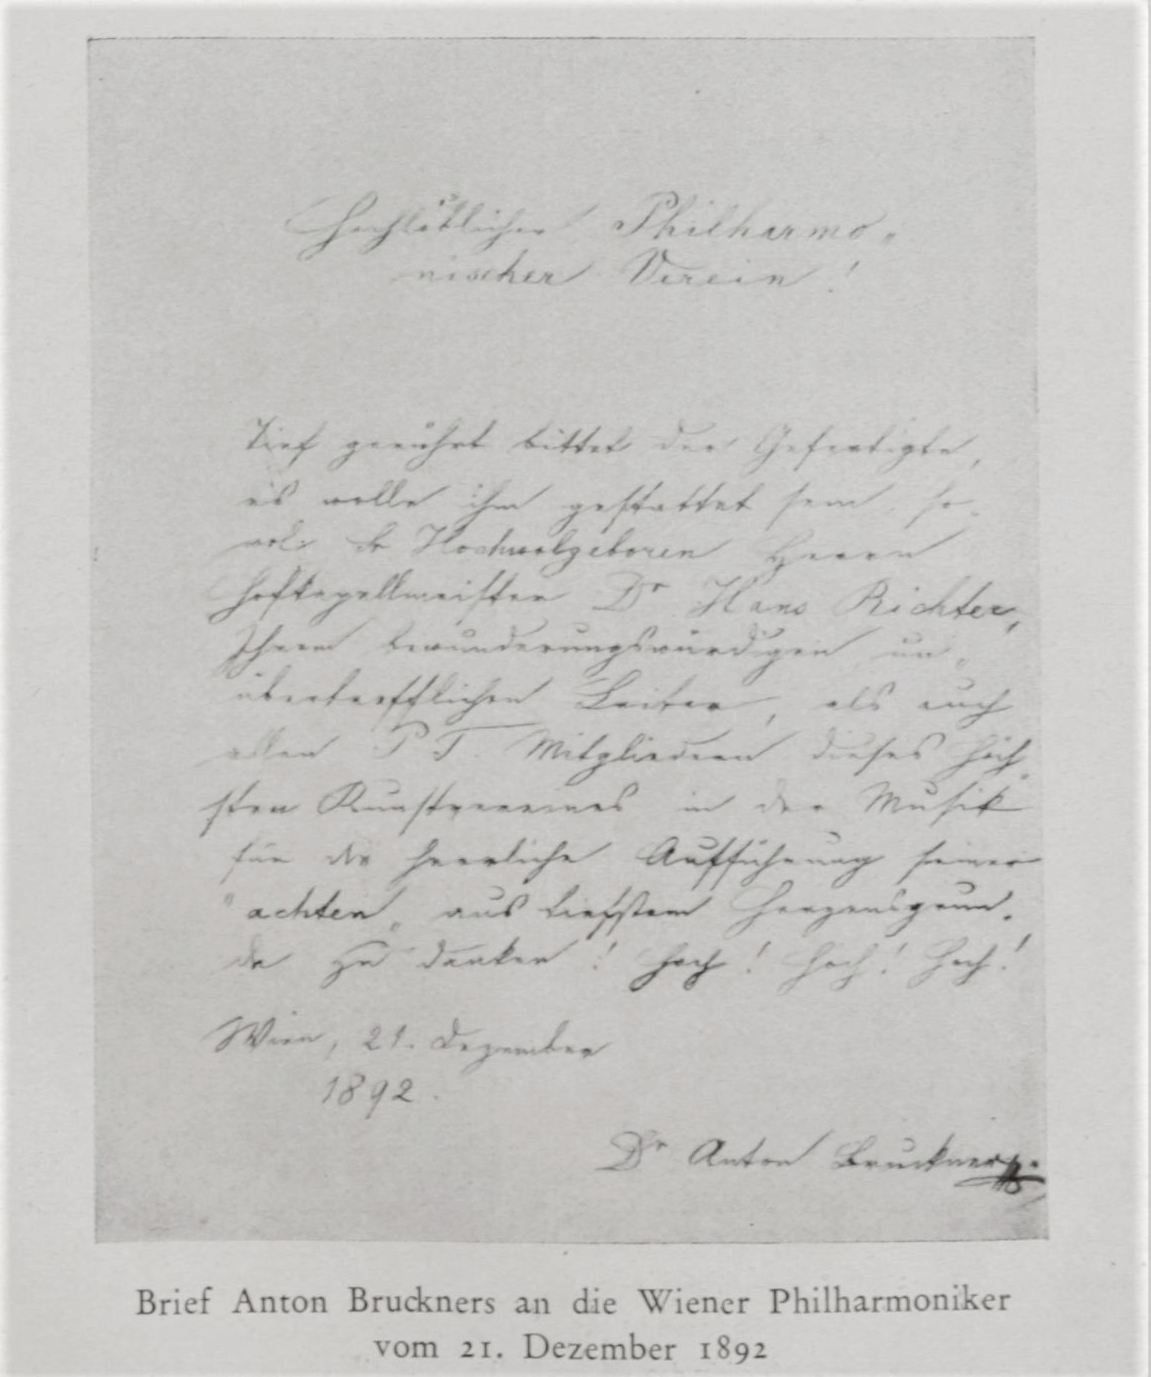 Hochlöblicher Philharmo„
nischer Verein!
Tief gerührt bittet der Gefertigte,
es wolle ihm gestattet sein, so-
wol Sr Hochwolgeboren Herrn
Hofkapellmeister Dr Hans Richter,
Ihrem bewunderungswürdigen un„
übertrefflichen Leiter, als auch
allen P. T. Mitgliedern dieses höch„
sten Kunstvereines in der Musik
für die herrliche Aufführung seiner
"achten„ aus tiefstem Herzensgrun„
de zu danken! Hoch! Hoch! Hoch!
Wien, 21. Dezember
1892.
Dr Anton Bruckner
Brief Anton Bruckners an die Wiener Philharmoniker
vom 21. Dezember 1892